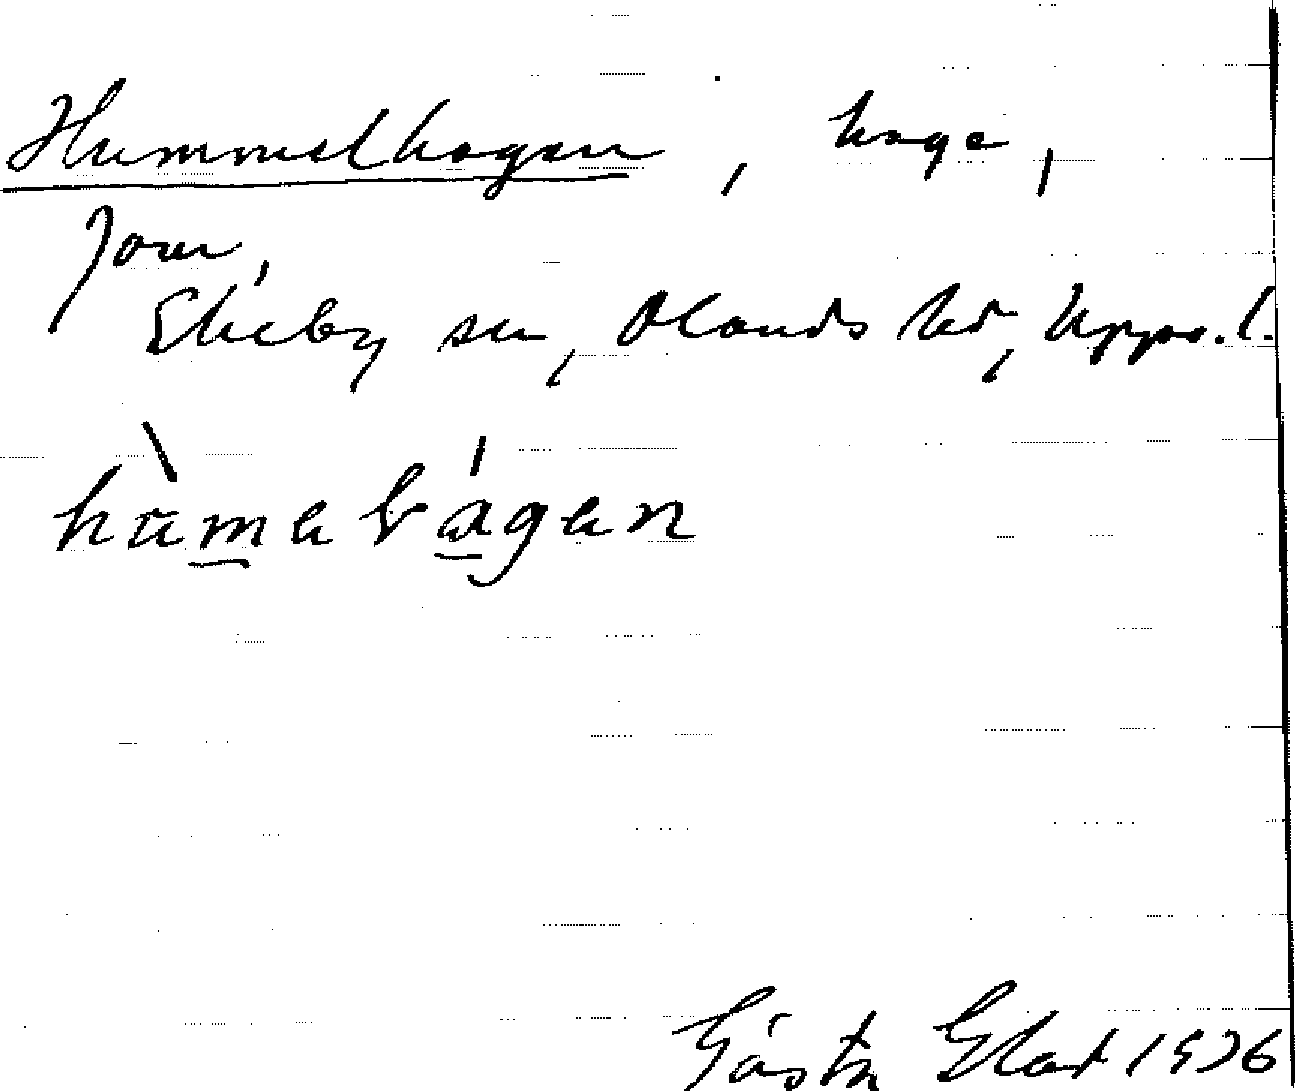 Hummelhagen, hage,
Jorn,
Ekeby sn, Olands hd, Upps. l.
hùmelágen
Gösta Glad 1936